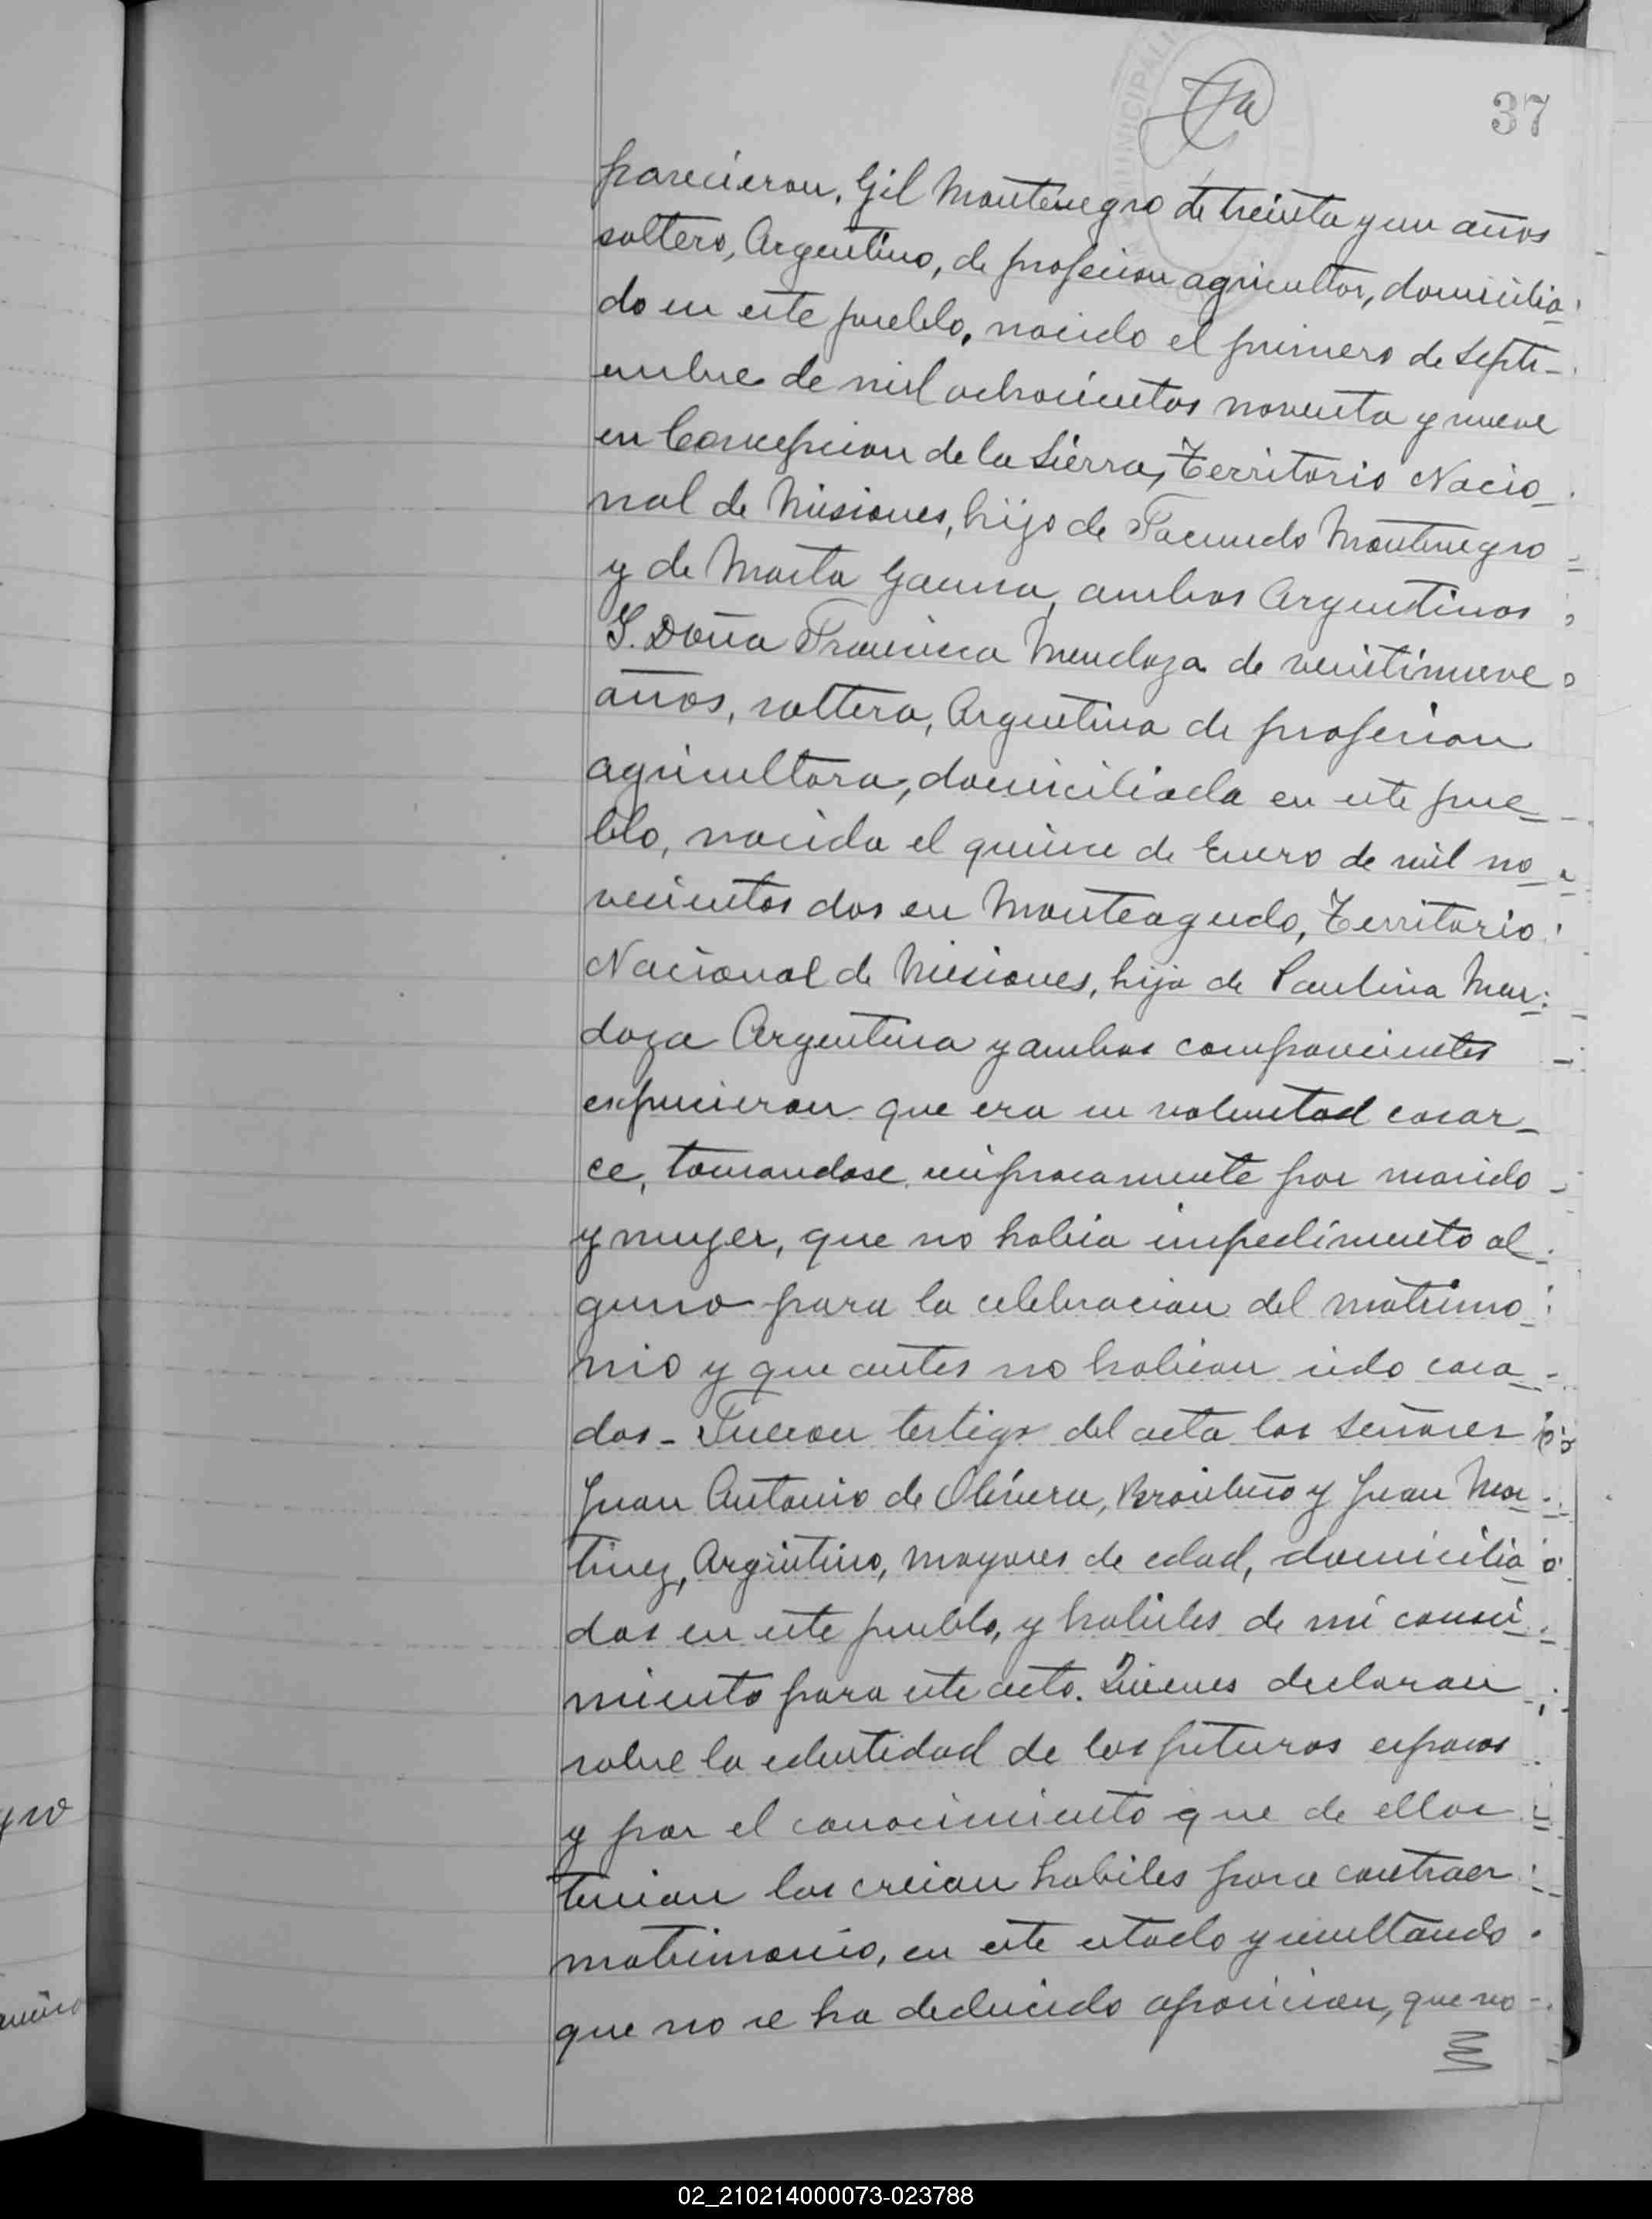 37
parecieron, Gil Montenegro de treinta y un años
soltero, Argentino, de profecion agricultor, domicilia
do en este pueblo, nacido el primero de Septi-
embre de mil ochocientos noventa y nueve
en Concepcion de la Sierra, Territorio Nacio
nal de Misiones, hijo de Facundo Montenegro
y de Marta Gauna, ambos Argentinos
Y. Doña Francisca Mendoza de veintinueve
años, soltera, Argentina de profecion
agricultora, domiciliada en este pue
blo, nacida el quince de Enero de mil no
vecientos dos en Monteagudo, Territorio
Nacional de Misiones, hija de Paulina Men
doza Argentina y ambos comparecientes
expucieron que era su voluntad casar
ce, tomandose reciprocamente por marido
y mujer, que no habia impedimento al
guno para la celebracion del matrimo
nio y que antes no habian sido casa
dos - Fueron testigos del acto los Señores
Juan Antonio de Olivera, Brasileño y Juan Mar
tinez, Argentino, mayores de edad, domicilia
dos en este pueblo, y habiles de mi conoci
miento para este acto. Quienes declaran
sobre la edentidad de los futuros esposos
y por el conocimiento que de ellos
tenian los creian habiles para contraer
matrimonio, en este estado y resultando
que no se ha deducido oposicion, que no
yro
02_210214000073-023788